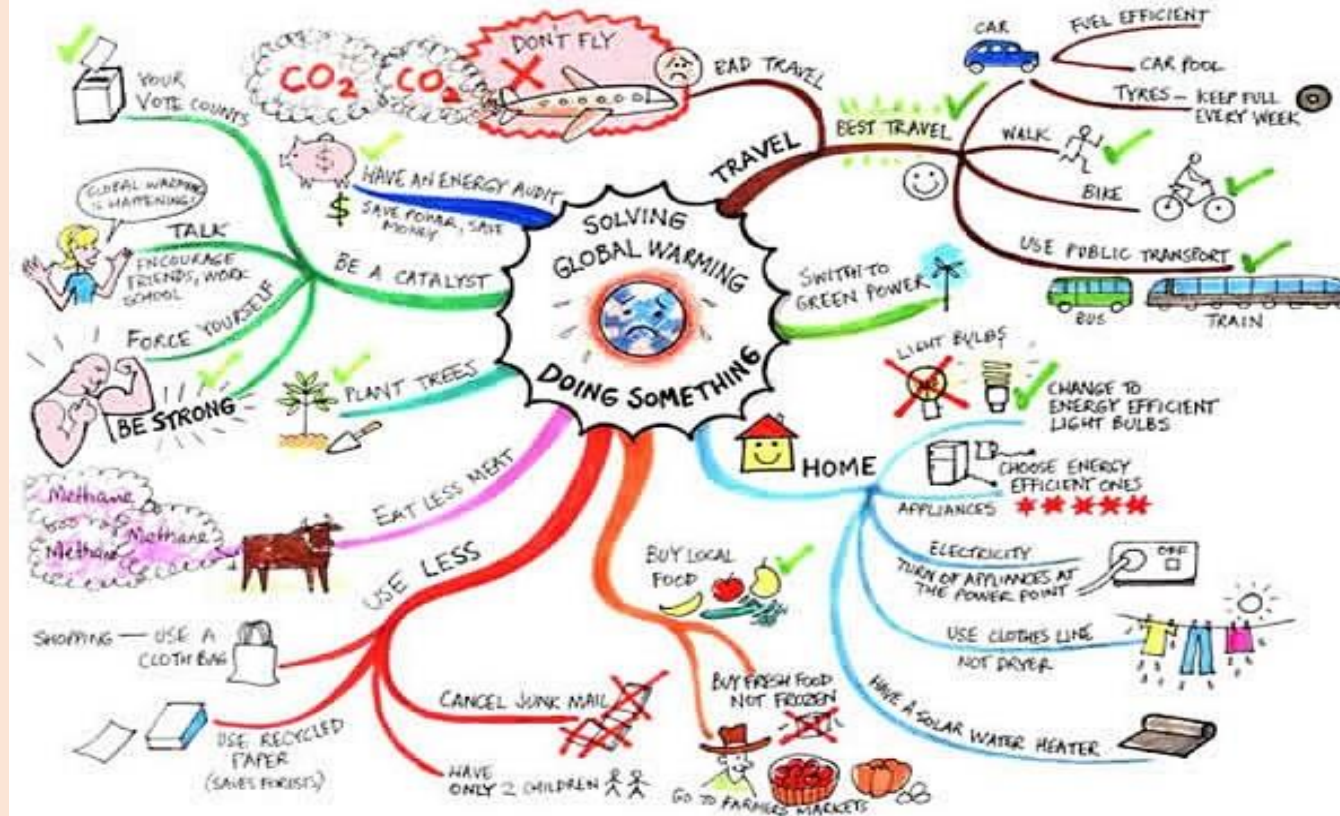 SOLVING
GLOBAL WARMING
DOING SOMETHING
TRAVEL
BAD TRAVEL
DON'T FLY
CO2
CO2
BEST TRAVEL
CAR
FUEL EFFICIENT
CAR POOL
TYRES - KEEP FULL
EVERY WEEK
WALK
BIKE
USE PUBLIC TRANSPORT
BUS
TRAIN
SWITCH TO
GREEN POWER
HOME
LIGHT BULBS
CHANGE TO
ENERGY EFFICIENT
LIGHT BULBS
CHOOSE ENERGY
EFFICIENT ONES
APPLIANCES
ELECTRICITY
TURN OF APPLIANCES AT
THE POWER POINT
OFF
USE CLOTHES LINE
NOT DRYER
HAVE A SOLAR
WATER HEATER
BUY LOCAL
FOOD
BUY FRESH FOOD
NOT FROZEN
GO TO FARMERS MARKETS
USE LESS
SHOPPING — USE A
CLOTH BAG
USE RECYCLED
PAPER
(SAVES FORISTS)
CANCEL JUNK MAIL
HAVE
ONLY 2 CHILDREN
EAT LESS MEAT
Methane
Methane
Methane
PLANT TREES
BE A CATALYST
YOUR
VOTE COUNTS
GLOBAL WARMING
IS HAPPENING!
TALK
ENCOURAGE
FRIENDS, WORK
SCHOOL
FORCE YOURSELF
BE STRONG
HAVE AN ENERGY AUDIT
SAVE POWAR, SAVE
MONEY
$